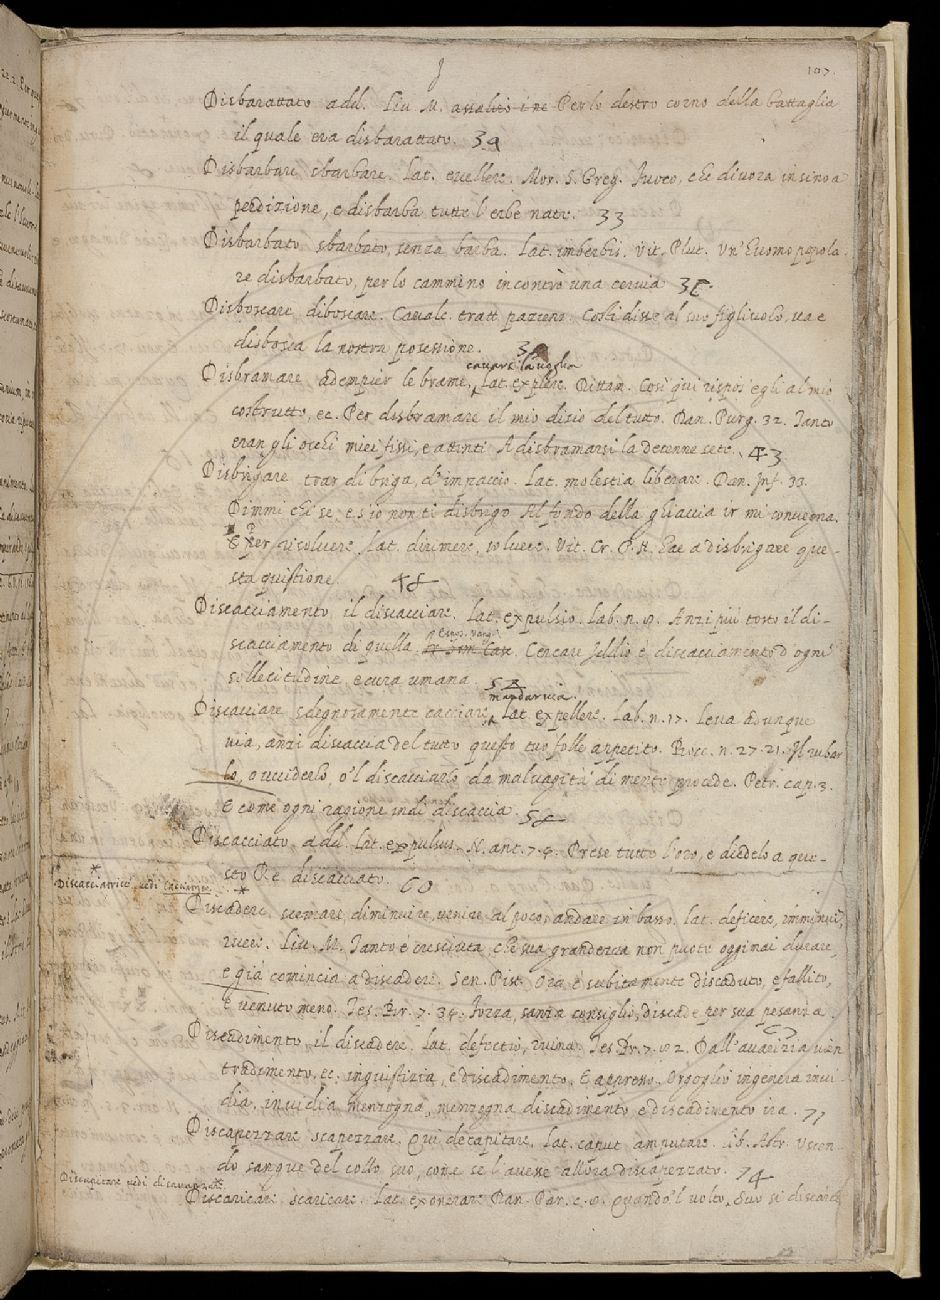 107.
Disbarattato add. Liu. M. Per lo destro corno della battaglia
il quale era disbarattato. 30
Disbarbare sbarbare. Lat. evellere. Mor. S. Greg. Fuoco, che divora insino a
perdizione, e disbarba tutte l'erbe nate. 33
Disbarbato sbarbato, senza barba. Lat. imberbis. Vit. Plut. Un' huomo popola-
re disbarbato, per lo cammino incontrò una cervia
Disboscare diboscare. Cavalc. tratt. pazienz. Così disse al suo figliuolo, va e
disbosca la nostra posessione.
cavarsi la voglia
Disbramare adempier le brame, Lat. explere. Dittam. Così qui rispos' egli al mio
costrutto, ec. Per disbramare il mio disio del tutto. Dan. Purg. 32. Tanto
eran gli occhi miei fissi, e attenti A disbramarsi la decenne sete. 43
Disbrigare trar di briga, d'impaccio. Lat. molestia liberare. Dan. Inf. 33.
Dimmi chi se, e s'io non ti disbrigo Al fondo della ghiaccia ir mi convegna.
E per risolvere, Lat. dirimere, solvere. Vit. Cr. a disbrigare que-
sta quistione. 48
Discacciamento il discacciare. Lat. expulsio. Lab. n. 9. Anzi più tosto il di-
scacciamento di quella. Espos. Vang. Cercare Iddio è discacciamento d'ogni
sollecitudine, e cura umana. 52
mandar via.
Discacciare sdegnosamente cacciare, Lat. expellere. Lab. n. 17. Leva adunque
via, anzi discaccia del tutto questo tuo folle appetito. Bocc. n. 27. 21. Il rubar-
lo, o ucciderlo o 'l discacciarlo da malvagità di mente procede. Petr. cap. 3.
E come ogni ragione indi discaccia. 58
Discacciato add. Lat. expulsus. N. ant. 7. Prese tutto l'oro, e diedelo a que-
sto Re discacciato. 60
* Discacciatrice vedi Cacciatrice.
* Discadere scemare, diminuire, venire al poco, andare in basso. Lat. deficere, imminui,
ruere. Liu. M. Tanto è cresciuta, che sua grandezza non puote oggimai durare,
e già comincia a discadere. Sen. Pist. Ora è subitamente discaduto, e fallito,
è venuto meno. Tes. Br. 7. Forza, sanza consiglio, discade per sua pesanza.
Discadimento il discadere. Lat. defectio, ruina. Tes. Br. 7. Dall'avarizia vien
tradimento, ec. inquistizia, e discadimento. E appresso. Orgoglio ingenera invi-
dia, invidia menzogna, menzogna discadimento e discadimento ira. 71
Discapezzare scapezzare, Qui decapitare, Lat. caput amputare. Lib. Astr. Uscen-
do sangue del collo suo, come se l'avesse allora discapezzato. 74
Discapitare vedi disavanzare.
Discaricare scaricare. Lat. exonerare. Dan. Par. Quando 'l volto suo si discarcò